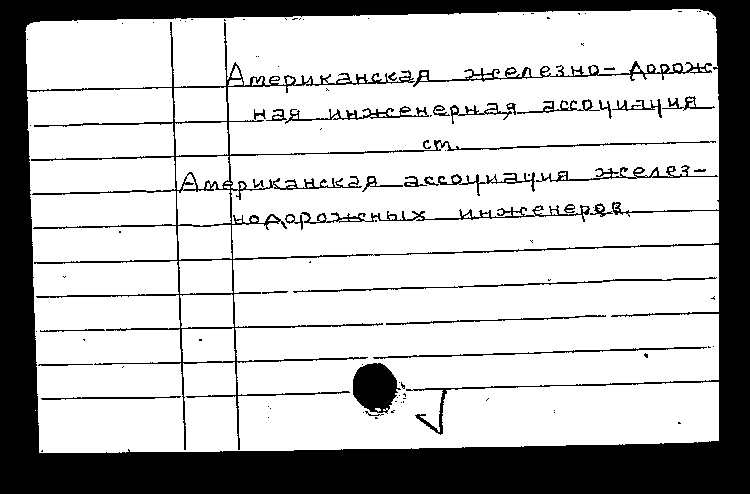 Американская железно-дорож-
ная инженерная ассоциация
ст.
Американская ассоциация желез-
нодорожных инженеров.